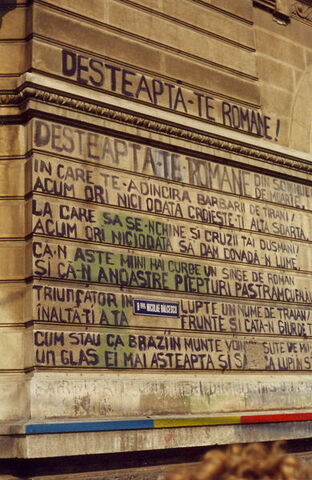 DESTEAPTA-TE ROMANE!
DESTEAPTA-TE ROMANE DIN SOMNUL DE MOARTE,
IN CARE TE-ADINCIRA BARBARII DE TIRANI/
ACUM ORI NICIODATA CROIESTE-TI ALTA SOARTA
LA CARE SA SE-NCHINE SI CRUZII TAI DUSMANI/
ACUM ORI NICIODATA SA DAM DOVADA-N LUME,
CA-N ASTE MIINI MAI CURGE UN SINGE DE ROMAN
SI CA-N A NOASTRE PIEPTURI PASTRAM CU
TRIUNFATOR IN LUPTE UN NUME DE TRAIAN/
STR. NICOLAE BĂLCESCU
INALTA-TI A TA FRUNTE SI CATA-N GIURU-TI
CUM STAU CA BRAZI IN MUNTE VOINICI SUTE DE MI
UN GLAS EI MAI ASTEAPTA SI SAR CA LUPII IN ST